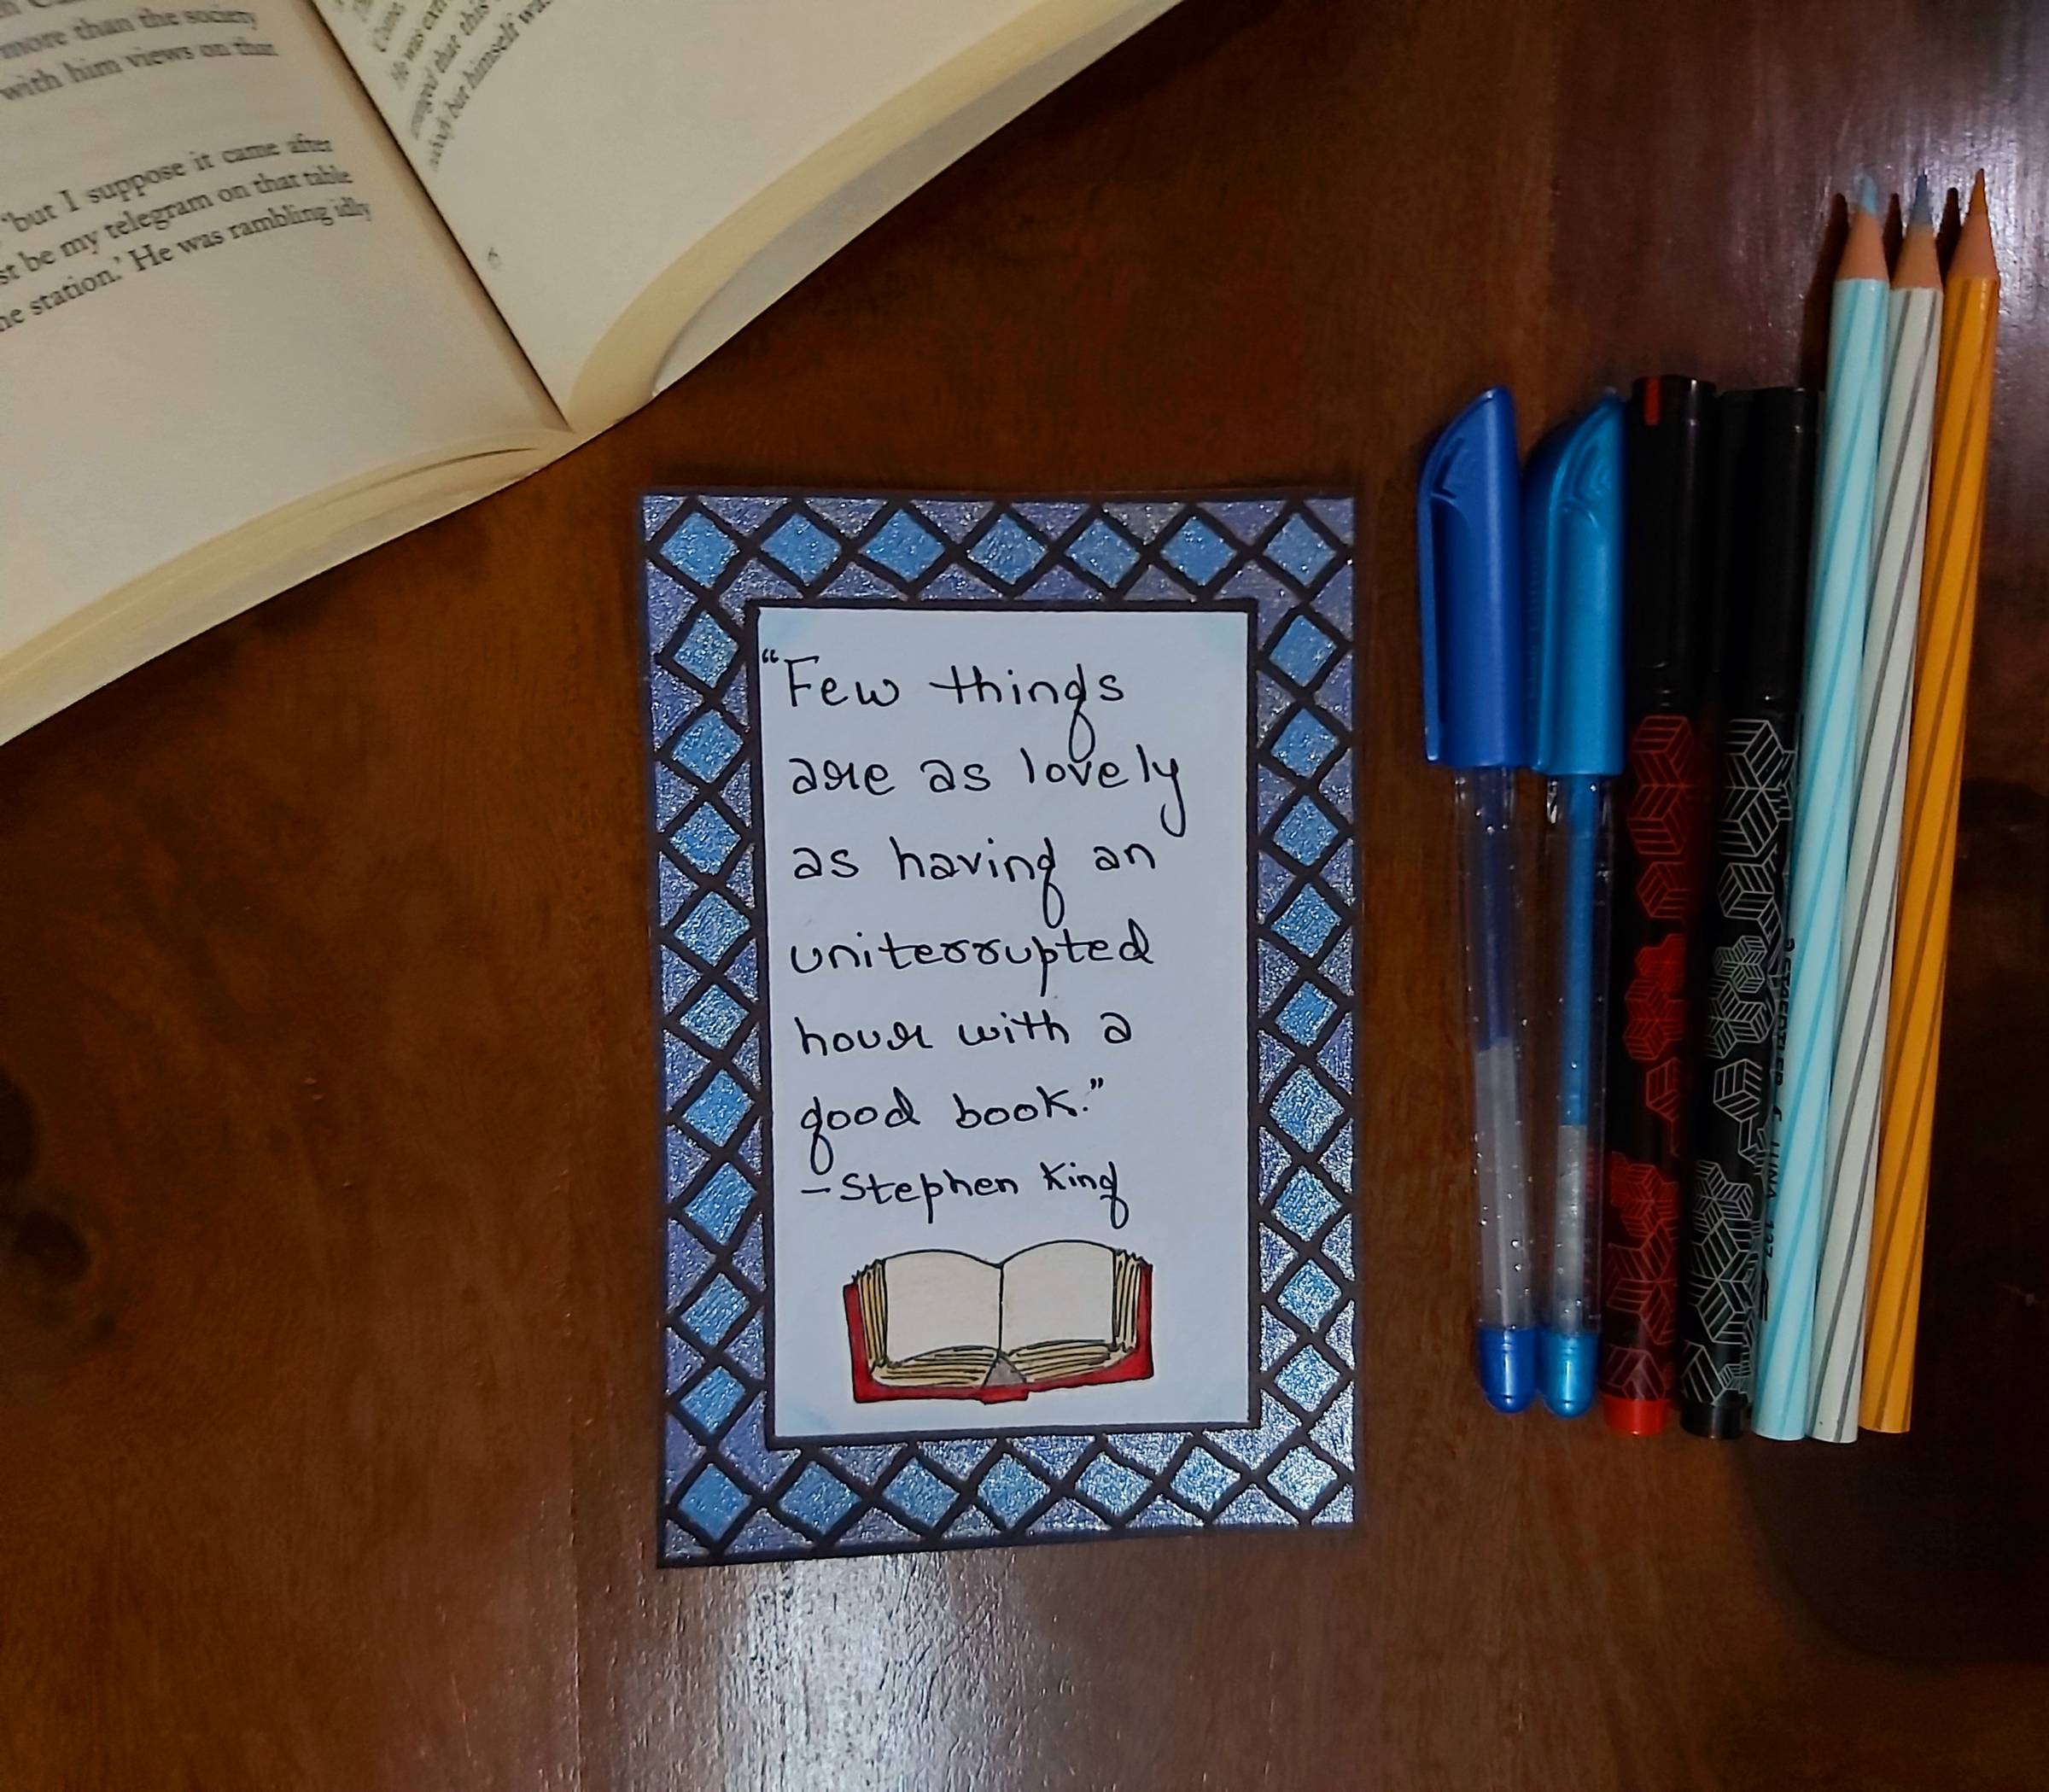 more than the society
with him views on that
'but I suppose it came after
st be my telegram on that table
he station.' He was rambling idly
He was
that this
but himself was
6
“Few things
are as lovely
as having an
uniterrupted
hour with a
good book.”
–Stephen King
STAEDTLER LUNA 137